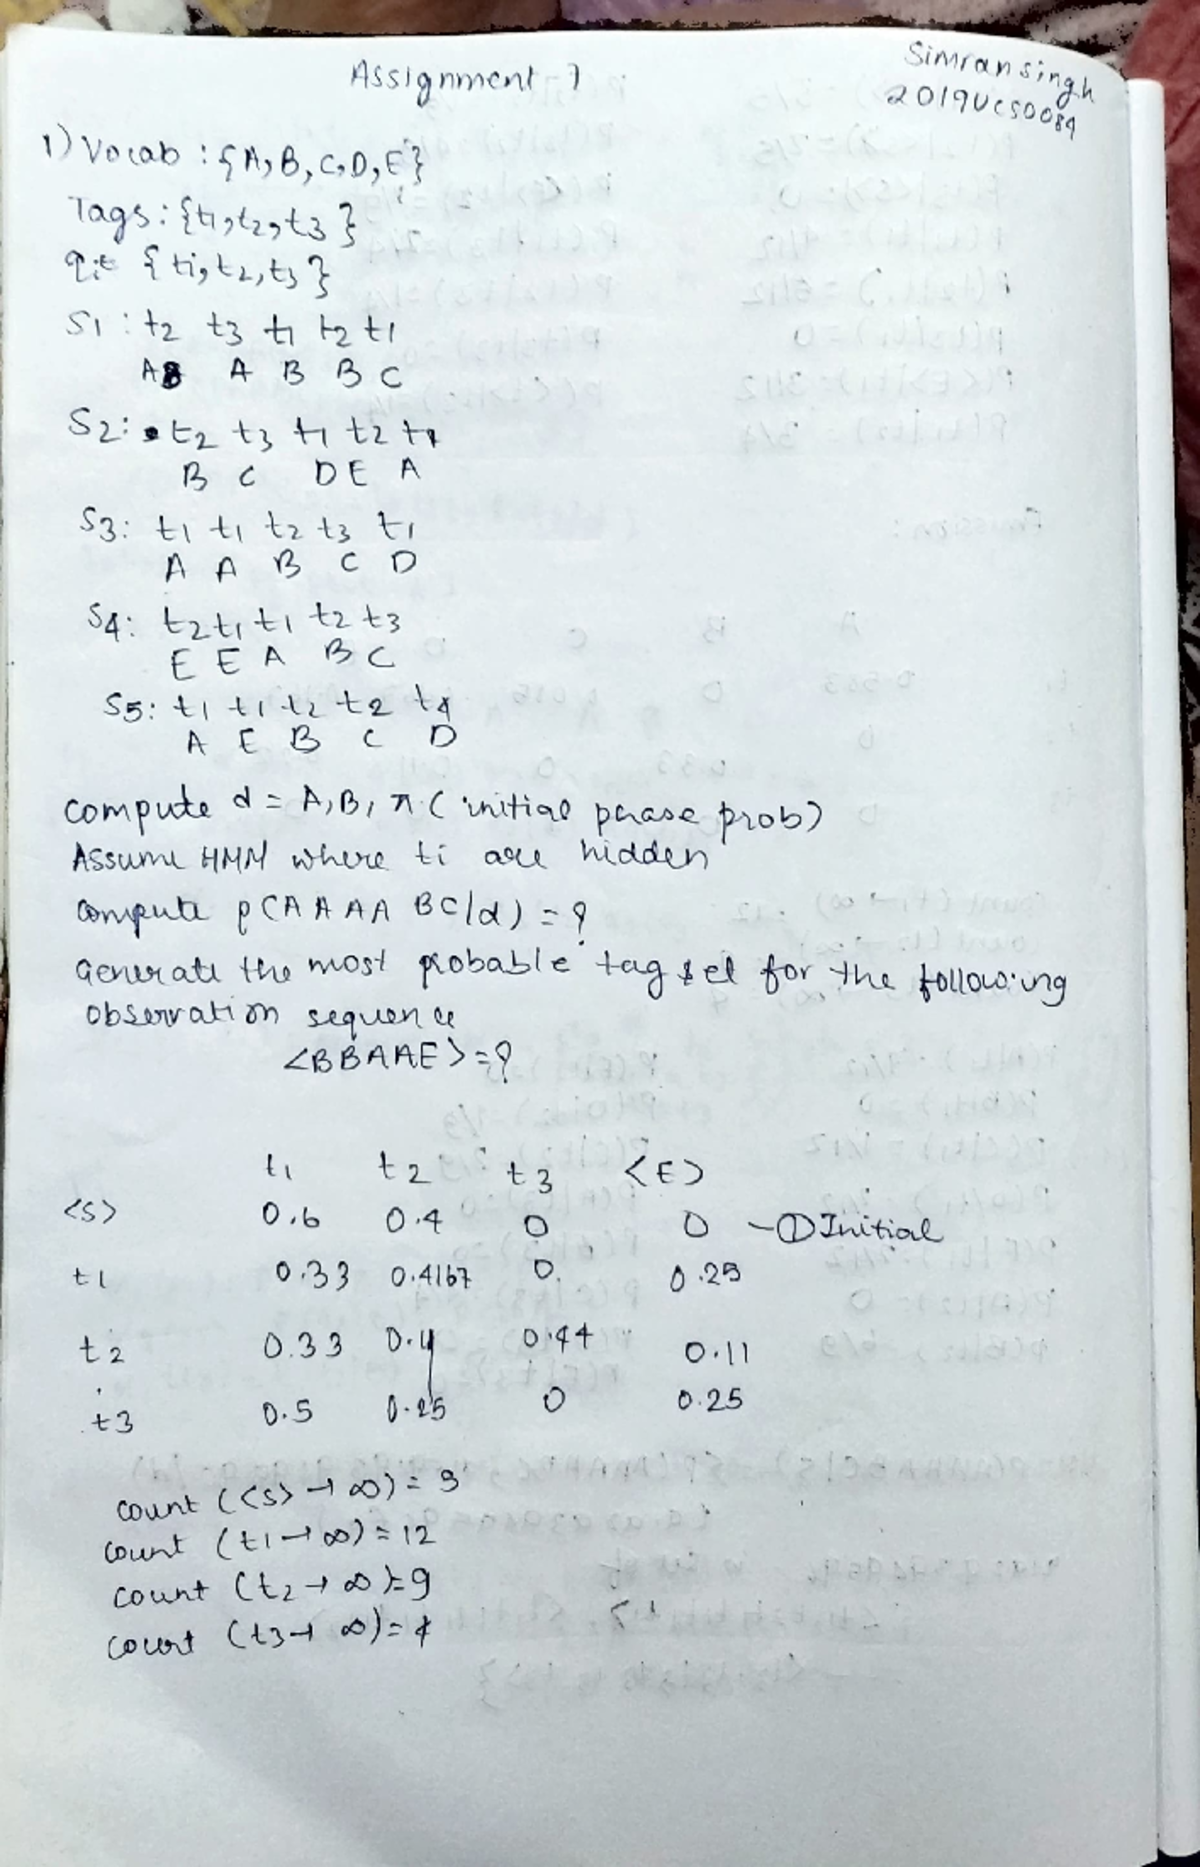 Assignment 7
Simran singh
2019UCS0084
1) Vocab : {A, B, C, D, E}
Tags : {t1, t2, t3}
qi ∈ {t1, t2, t3}
S1 : t2 t3 t1 t2 t1
A A B B C
S2 : t2 t3 t1 t2 t1
B C D E A
S3: t1 t1 t2 t3 t1
A A B C D
S4: t2 t1 t1 t2 t3
E E A B C
S5: t1 t1 t2 t2 t1
A E B C D
compute d = A, B, π ( initial phase prob)
Assume HMM where ti are hidden
compute p(A A A A B C | d ) = ?
Generate the most probable tag set for the following
observation sequence
<BBAAE> = ?
t1 t2 t3 <E>
<S> 0.6 0.4 0 0 - ① Initial
t1 0.33 0.4167 0. 0.25
t2 0.33 0.11 0.44 0.11
t3 0.5 0.25 0 0.25
count (<S> → ∞) =
count (t1 → ∞) = 12
count (t2 → ∞) = 9
count (t3 → ∞) = 4